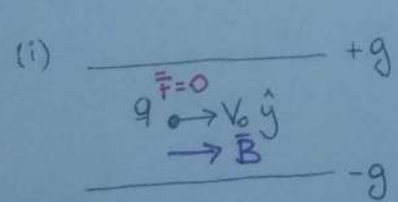 (i) +g
F̄=0
q → V₀ ŷ
→ B̄
-g